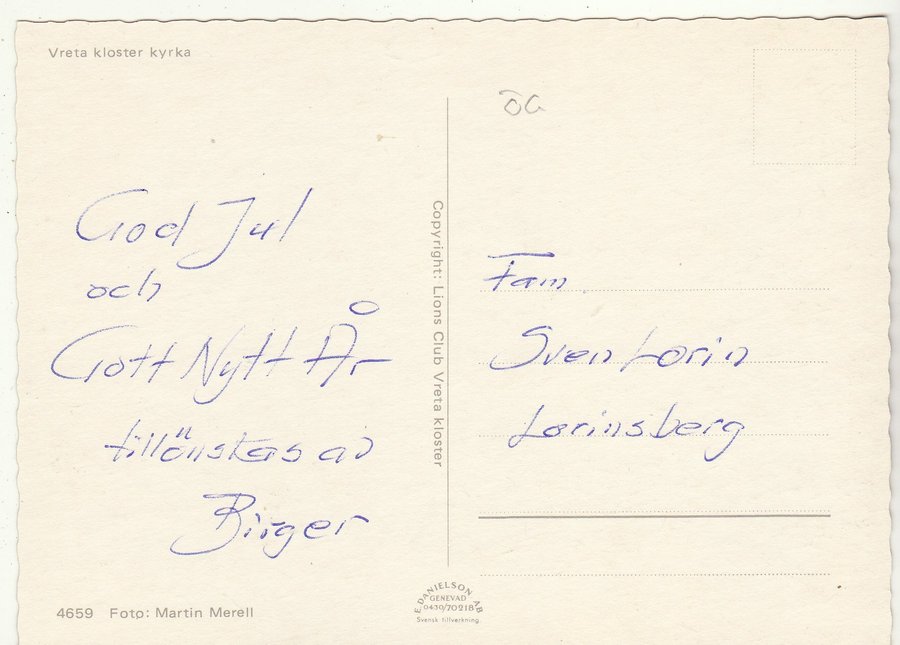 Vreta kloster kyrka
ÖG
God Jul
och
Gott Nytt År
tillönskas av
Birger
Copyright: Lions Club Vreta kloster
Fam
Sven Lorin
Lorinsberg
4659 Foto: Martin Merell
E. DANIELSON AB
GENEVAD
0430/70218
Svensk tillverkning.